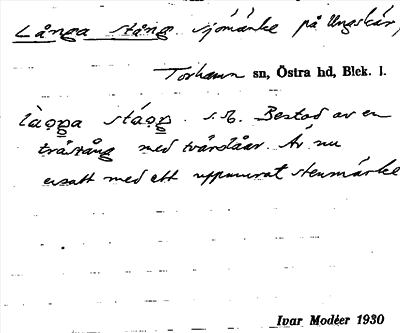 Långa stång. sjömärke på Ungskär,
Torhamn sn, Östra hd, Blek. l.
s. ß. Bestod av en
trästång med tvärslåar. Är nu
ersatt med ett uppmurat stenmärke
Ivar Modéer 1930